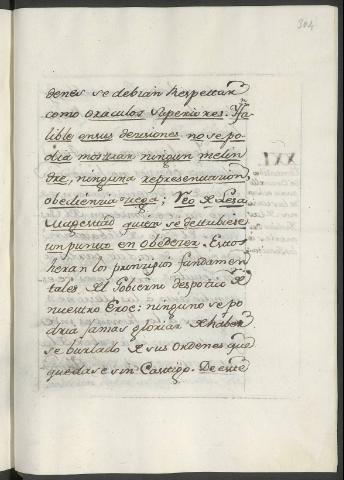 304
denes se debian Respettar
como oraculos superiores. Ynfa
lible en sus decisiones no se po
dia mostrar ningun melin
dre, ninguna representacion,
obediencia ciega; Reo de Lesa
Magestad quien se detubiese
un punto en obedecer. Estos
heran los prinzipios fundamen
tales del Gobierno despotico de
nuestro Eroe: ninguno se po
dria jamas gloriar de haber
se burlado de sus Ordenes que
quedase sin Castigo. De este
XXI.